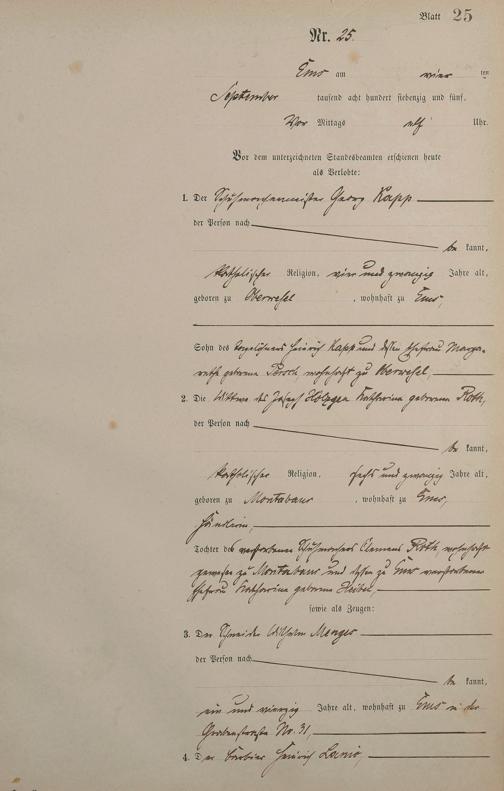 Blatt 25
Nr. 25.
Ems am vier ten
September tausend acht hundert siebenzig und fünf,
Vor Mittags elf Uhr.
Vor dem unterzeichneten Standesbeamten erschienen heute
als Verlobte:
1. Der Schuhmachermeister Georg Kapp
der Person nach
be kannt,
katholischer Religion, vier und zwanzig Jahre alt,
geboren zu Oberwesel, wohnhaft zu Ems,
Sohn des Tagelöhners Heinrich Kapp und dessen Ehefrau Marga-
retha geborene Persch, wohnhaft zu Oberwesel,
2. Die Wittwe des Josef Holzgen Katharina geborene Roth,
der Person nach
be kannt,
katholischer Religion, sechs und zwanzig Jahre alt,
geboren zu Montabaur, wohnhaft zu Ems,
Händlerin,
Tochter des verstorbenen Schuhmachers Clemens Roth, wohnhaft
gewesen zu Montabaur und dessen zu Ems verstorbenen
Ehefrau Katharina geborene Heibel,
sowie als Zeugen:
3. Der Schneider Wilhelm Menges
der Person nach
be kannt,
ein und vierzig Jahre alt, wohnhaft zu Ems in der
Grabenstraße Nr. 31,
4. Der Barbier Heinrich Lanio,